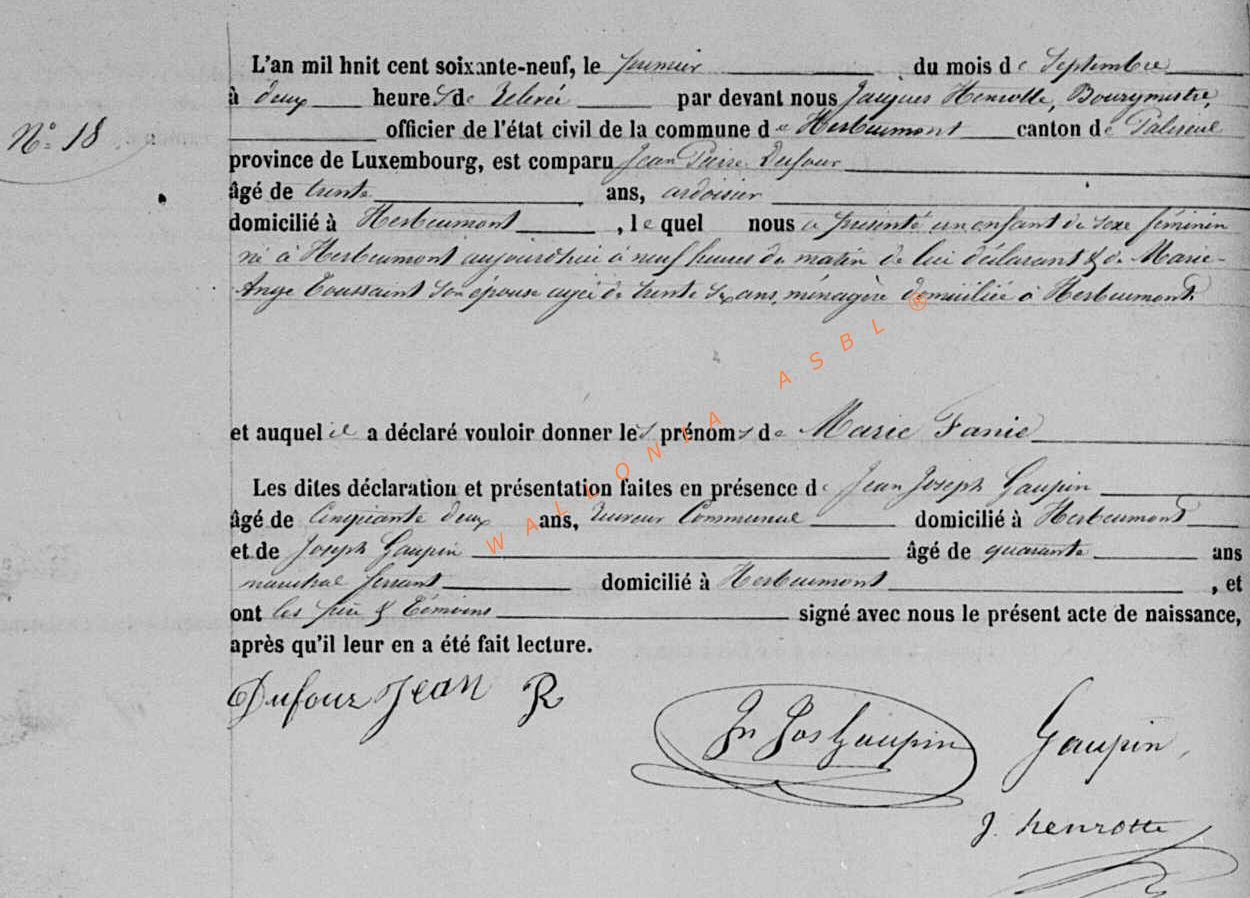 L'an mil huit cent soixante-neuf, le premier du mois de Septembre
à deux heures de relevée par devant nous Jacques Henrotte, Bourgmestre,
officier de l'état civil de la commune de Herbeumont canton de Paliseul
N° 18
province de Luxembourg, est comparu Jean Pierre Dufour
âgé de trente ans, ardoisier
domicilié à Herbeumont, lequel nous a présenté un enfant de sexe féminin
né à Herbeumont aujourd'hui à neuf heures du matin de lui déclarant & de Marie-
Ange Toussaint son épouse agée de trente six ans, ménagère domiciliée à Herbeumont
et auquel il a déclaré vouloir donner les prénoms de Marie Fanie
Les dites déclaration et présentation faites en présence de Jean Joseph Gaupin
âgé de Cinquante deux ans, Receveur Communal domicilié à Herbeumont
et de Joseph Gaupin âgé de quarante ans
maréchal ferrant domicilié à Herbeumont, et
ont les père & Témoins signé avec nous le présent acte de naissance,
après qu'il leur en a été fait lecture.
Dufour Jean P
Jn Jos Gaupin
Gaupin
J. henrotte
WALLONIA ASBL ®